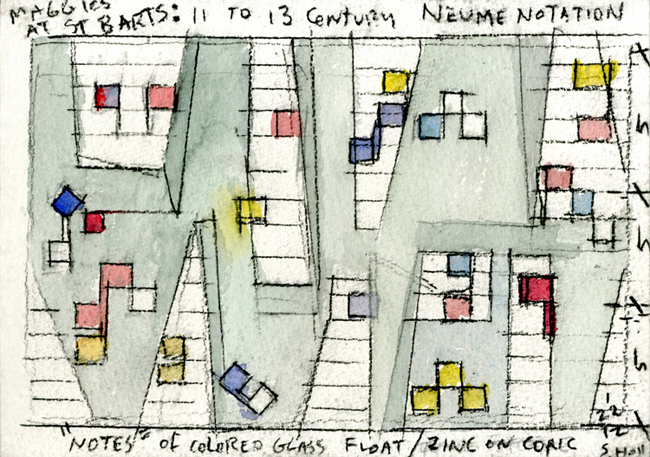 MAGGIES
AT ST BARTS: 11 TO 13 CENTURY NEUME NOTATION
h
h
h
"NOTES" OF COLORED GLASS FLOAT / ZINC ON
S. Holl